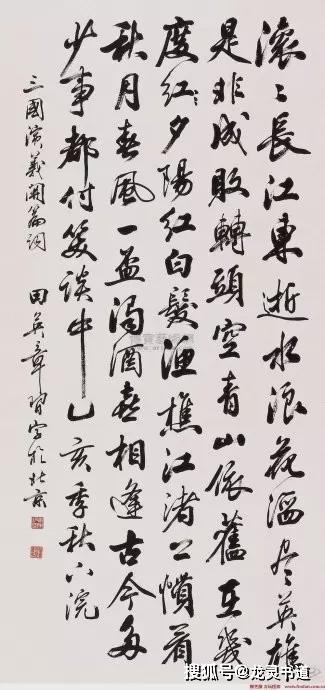 滚〻長江東逝水浪花淘尽英雄
是非成敗轉頭空青山依舊在幾
度红〻夕陽红白髮渔樵江渚上慣看
秋月春風一壶濁酒喜相逢古今多
少事都付笑談中乙亥季秋下浣
三國演義開篇詞 田英章習字於北京
搜狐号@龙灵书道